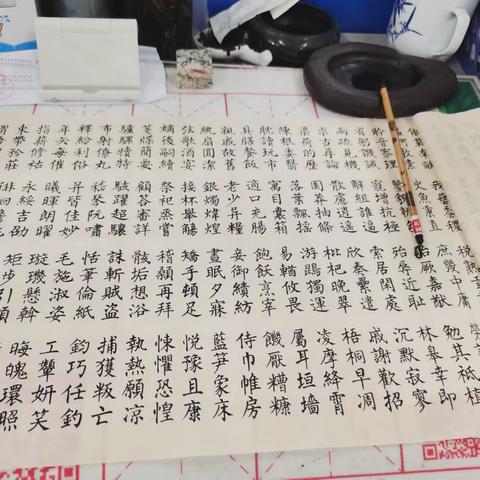 我藝黍稷
稅熟貢新
史魚秉直
庶幾中庸
聆音察理
貽厥嘉猷
勉其祗植
省躬譏誡
寵增抗極
殆辱近恥
林皋幸即
兩疏見機
解組誰逼
索居閒處
沉默寂寥
求古尋論
散慮逍遙
欣奏累遣
慼謝歡招
渠荷的歷
園莽抽條
枇杷晚翠
梧桐早凋
陳根委翳
落葉飄搖
游鵾獨運
凌摩絳霄
耽讀玩市
寓目囊箱
易輶攸畏
屬耳垣墻
具膳餐飯
適口充腸
飽飫烹宰
饑厭糟糠
親戚故舊
老少異糧
妾御績紡
侍巾帷房
紈扇圓潔
銀燭煒煌
晝眠夕寐
藍笋象床
弦歌酒宴
接杯舉觴
矯手頓足
悅豫且康
嫡後嗣續
祭祀蒸嘗
稽顙再拜
悚懼恐惶
箋牒簡要
顧答審詳
骸垢想浴
執熱願涼
驢騾犢特
駭躍超驤
誅斬賊盜
捕獲叛亡
布射僚丸
嵇琴阮嘯
恬筆倫紙
鈞巧任釣
釋紛利俗
並皆佳妙
毛施淑姿
工顰妍笑
年矢每催
曦暉朗曜
璇璣懸斡
晦魄環照
指薪修祜
永綏吉劭
矩步引領
束帶矜莊
徘徊